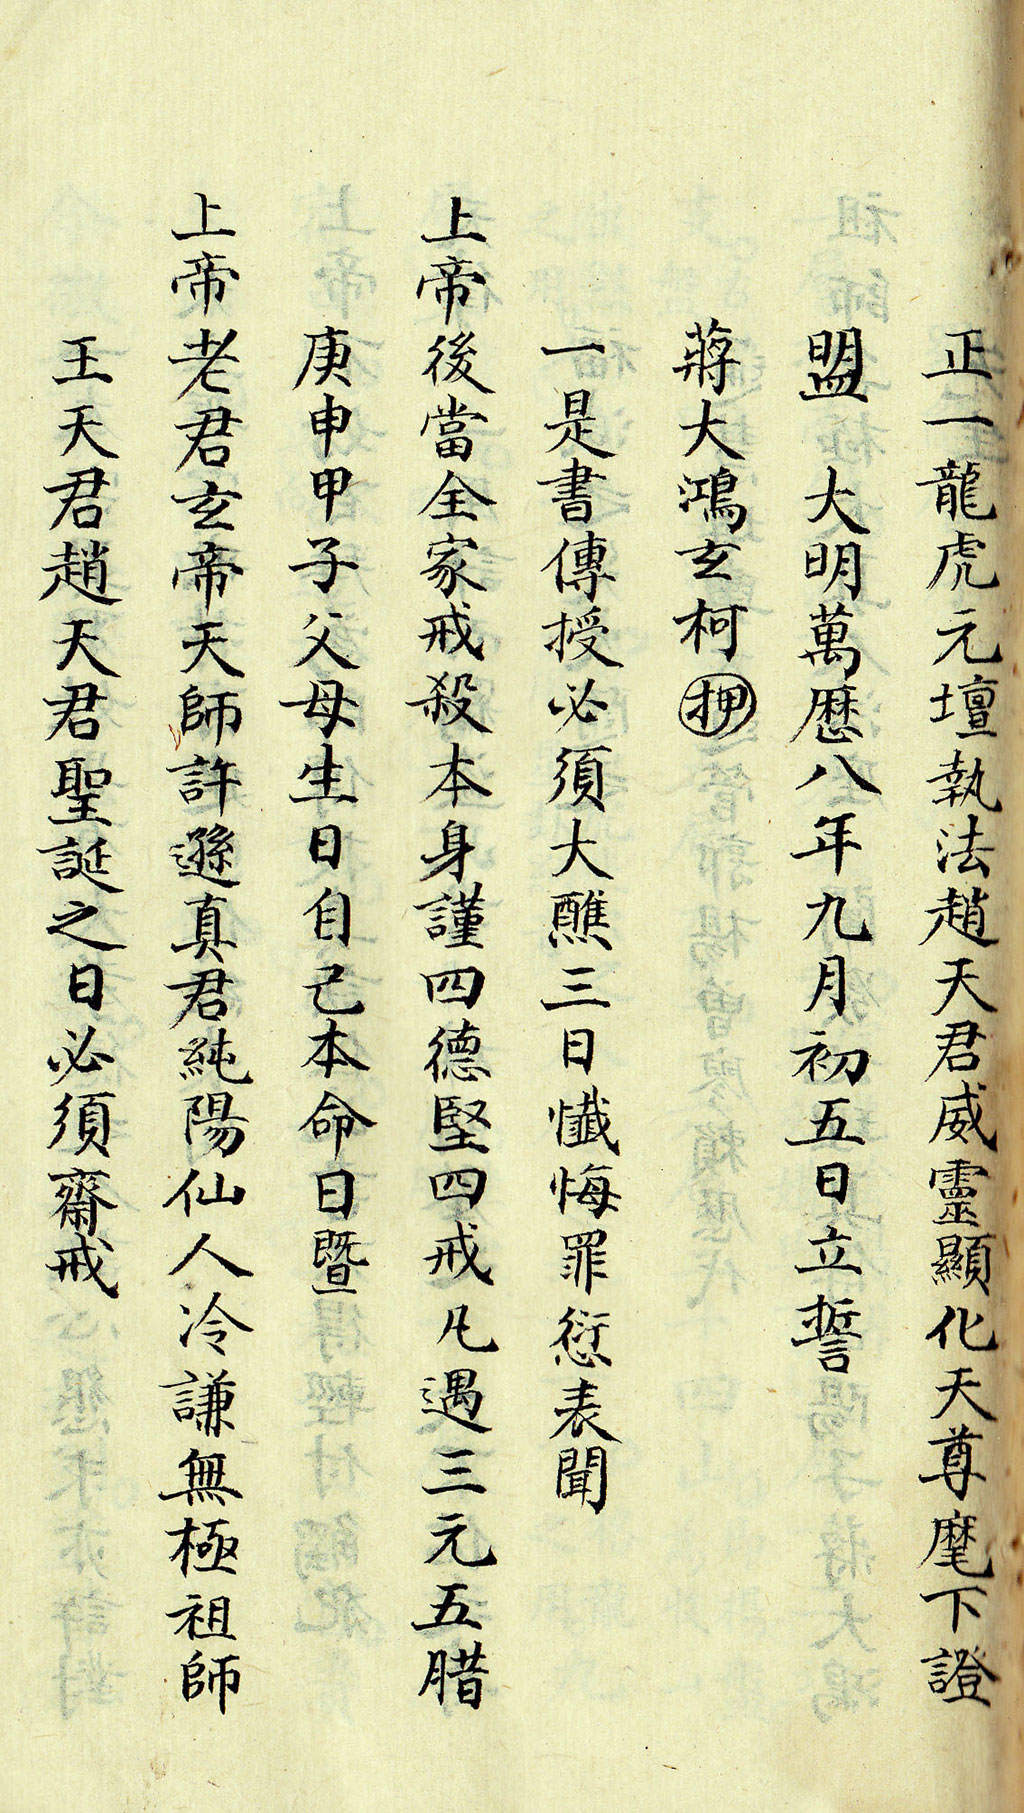 正一龍虎元壇執法趙天君威靈顯化天尊麾下證
盟　大明萬曆八年九月初五日立誓
蔣大鴻玄柯押
一是書傳授必須大醮三日懺悔罪愆表聞
上帝後當全家戒殺本身謹四德堅四戒凡遇三元五腊
庚申甲子父母生日自己本命日暨
上帝老君玄帝天師許遜真君純陽仙人冷謙無極祖師
王天君趙天君聖誕之日必須齋戒